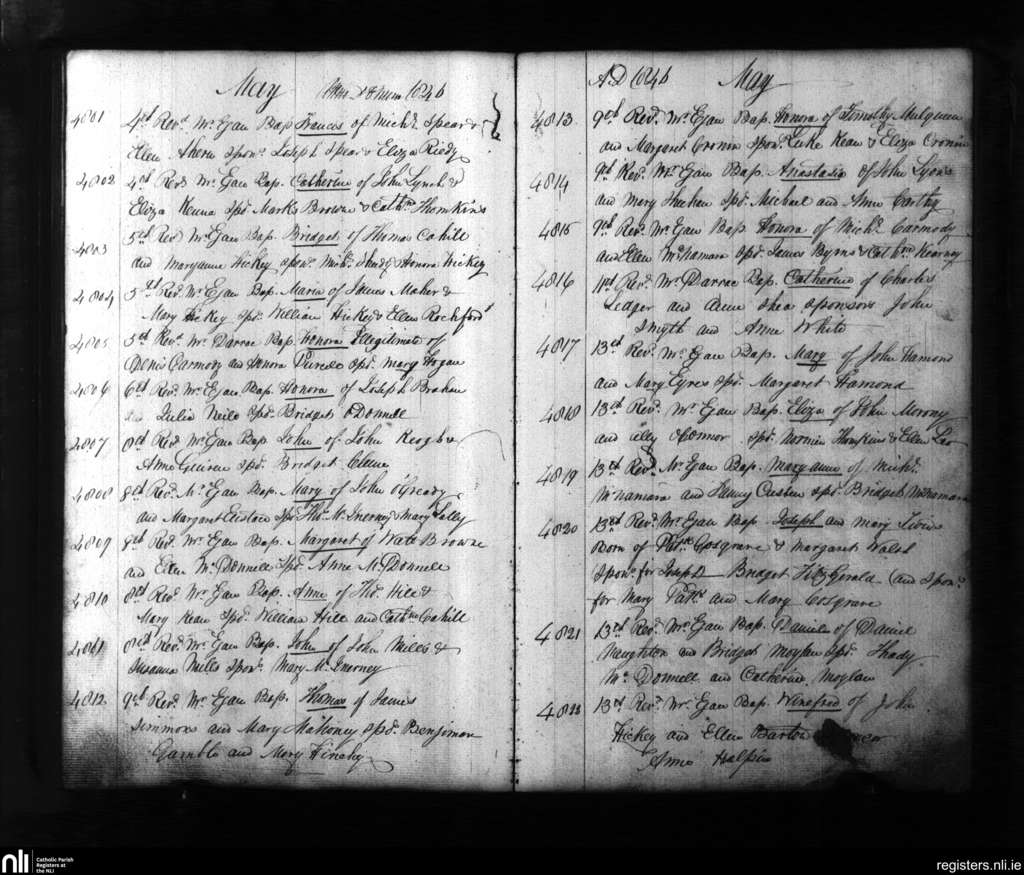 May Anno Domini 1846
4801 4th Revd Mr Egan Bap. Frances of Michl Spear &
Ellen Ahern Sponrs Joseph Spear & Eliza Riedy
4802 4th Revd Mr Egan Bap. Catherine of John Lynch &
Eliza Keuna Sprs Marks Browne & Cathne Thomkins
4803 5th Revd Mr Egan Bap. Bridget of Thomas Cahill
and Maryanne Hickey Sponrs Michl & Honora Hickey
4804 5th Revd Mr Egan Bap. Maria of James Maher &
Mary Hickey Sprs William Hickey & Ellen Rochford
4805 5th Revd Mr Darrac Bap. Honora Illegitimate of
Denis Carmody and Honora Purcell Sprs Mary Hogan
4806 6th Revd Mr Egan Bap. Honora of Joseph
Julia Neile Sprs Bridget ODonnell
4807 8th Revd Mr Egan Bap. John of John Keogh &
Anne Sprs Bridget Clune
4808 8th Revd Mr Egan Bap. Mary of John O'Gready
and Margaret Sprs Thos McInerney & Mary Lally
4809 8th Revd Mr Egan Bap. Margaret of Watt Browne
and Ellen McDonnell Sprs Anne McDonnell
4810 8th Revd Mr Egan Bap. Anne of Thos Hill &
Mary Kean Sprs William Hill and Cathne Cahill
4811 8th Revd Mr Egan Bap. John of John Mills &
Susanna Mills Sponrs Mary McInerney
4812 9th Revd Mr Egan Bap. Thomas of James
Simmons and Mary Mahoney Sprs Benjiman
Gamble and Mary
AD 1846 May
4813 9th Revd Mr Egan Bap. Honora of Timothy Mulqueen
and Margaret Cronin Sponrs Luke Kean & Eliza Cronin
4814 9th Revd Mr Egan Bap. Anastasia of John Lyons
and Mary Sheehan Sprs Michael and Anne Carthy
4815 9th Revd Mr Egan Bap. Honora of Michl Carmody
and Ellen McNamara Sprs James Byrns & Cathne Kearney
4816 11th Revd Mr Darrac Bap. Catherine of Charles
Leager and Anne Shea Sponsors John
Smyth and Anne White
4817 13th Revd Mr Egan Bap. Mary of John Hamond
and Mary Eyres Sprs Margaret Hamond
4818 13th Revd Mr Egan Bap. Eliza of John Morony
and Elley OConnor Sprs Thomkins & Ellen Lee
4819 13th Revd Mr Egan Bap. Maryanne of Michl
McNamara and Fanny Cusben Sprs Bridget McNamara
4820 13th Revd Mr Egan Bap. Joseph and Mary Twins
Born of Patk Cosgrave & Margaret Walsh
Sponrs for Joseph Bridget Fitzgerald (and Sponrs
for Mary Patk and Mary Cosgrave
4821 13th Revd Mr Egan Bap. Daniel of Daniel
Naughton and Bridget Moylan Sprs Thady
McDonnell and Catherine Moylan
4822 13th Revd Mr Egan Bap. Winefred of John
Hickey and Ellen Barton
Anne Halpin
nli Catholic Parish
Registers at
the NLI
registers.nli.ie